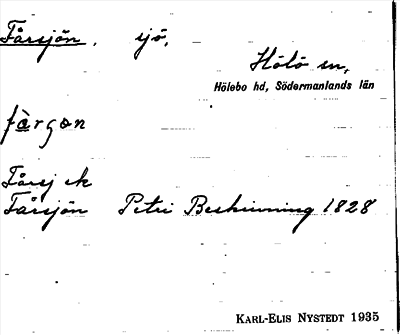 Fårsjön, sjö,
Hölö sn,
Hölebo hd, Södermanlands län
fårson
Fårsj ek
Fårsjön Petri Beskrivning 1828
KARL-ELIS NYSTEDT 1935